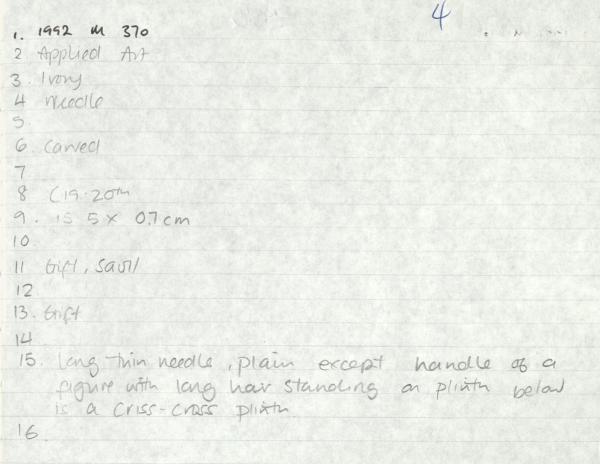 4
1. 1992 M 370
2 Applied Art
3. Ivory
4 needle
5.
6. carved
7
8 C19-20th
9. 15 5 x 0.7cm
10
11 Gift, Savill
12
13. Gift
14
15. long thin needle, plain except handle of a
figure with long hair standing on plinth below
is a criss-cross plinth
16